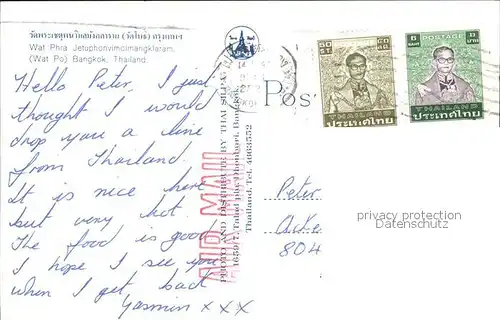 วัดพระเชตุพนวิมลมังคลาราม (วัดโพธิ์) กรุงเทพฯ
Wat Phra Jetuphonvimolmangklaram.
(Wat Po) Bangkok, Thailand.
Hello Peter, I just
thought I would
drop you a line
from Thailand.
It is nice here
but very hot
The food is good
I hope I see you
when I get back
Yasmin xxx
PHOTO AND DISTRIBUTE BY THAI
Bangkok.
Thailand. Tel. 4663552
AIR MAIL
POS
50 ST.
THAILAND
ประเทศไทย
6 BAHT
POSTAGE
๖ บาท
THAILAND
ประเทศไทย
Peter
804
privacy protection
Datenschutz